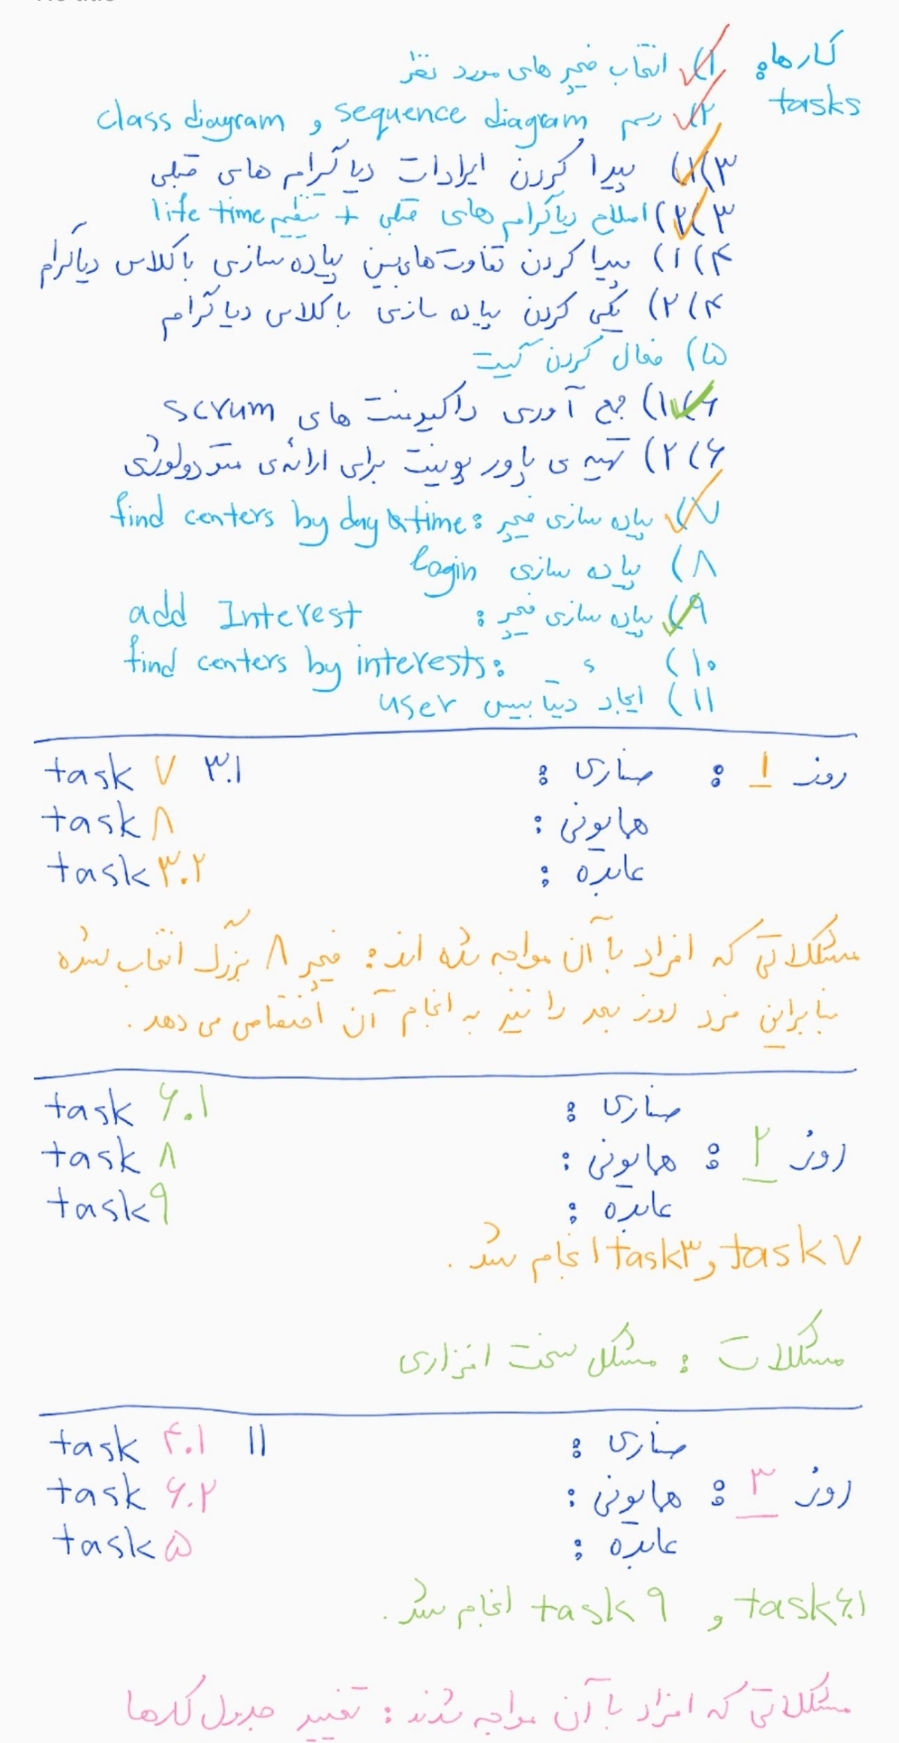 کارها:
tasks
۱) انتخاب فیچر های مورد نظر
۲) رسم sequence diagram و class diagram
۳)۱) پیدا کردن ایرادات دیاگرام های قبلی
۳)۲) اصلاح دیاگرام های قبلی + تنظیم life time
۴)۱) پیدا کردن تفاوت‌های بین پیاده سازی با کلاس دیاگرام
۴)۲) یکی کردن پیاده سازی با کلاس دیاگرام
۵) فعال کردن گیت
۶)۱) جمع آوری داکیومنت های scrum
۶)۲) تهیه ی پاور پوینت برای ارائه‌ی متودولوژی
۷) پیاده سازی فیچر: find centers by day & time
۸) پیاده سازی login
۹) پیاده سازی فیچر: add Interest
۱۰) find centers by interests:
۱۱) ایجاد دیتابیس user
روز ۱: صناری: task ۷ ۳.۱
همایونی: task ۸
عابده: task ۳.۲
مشکلاتی که افراد با آن مواجه شده اند: فیچر ۸ بزرگ انتخاب شده
بنابراین فرد روز بعد را نیز به انجام آن اختصاص می دهد.
صناری: task ۶.۱
روز ۲: همایونی: task ۸
عابده: task ۹
task ۷ و task ۳ انجام شد.
مشکلات: مشکل سخت افزاری
صناری: task ۴.۱ ۱۱
روز ۳: همایونی: task ۶.۲
عابده: task ۵
task ۶.۱ و task ۹ انجام شد.
مشکلاتی که افراد با آن مواجه شدند: تغییر جدول کارها